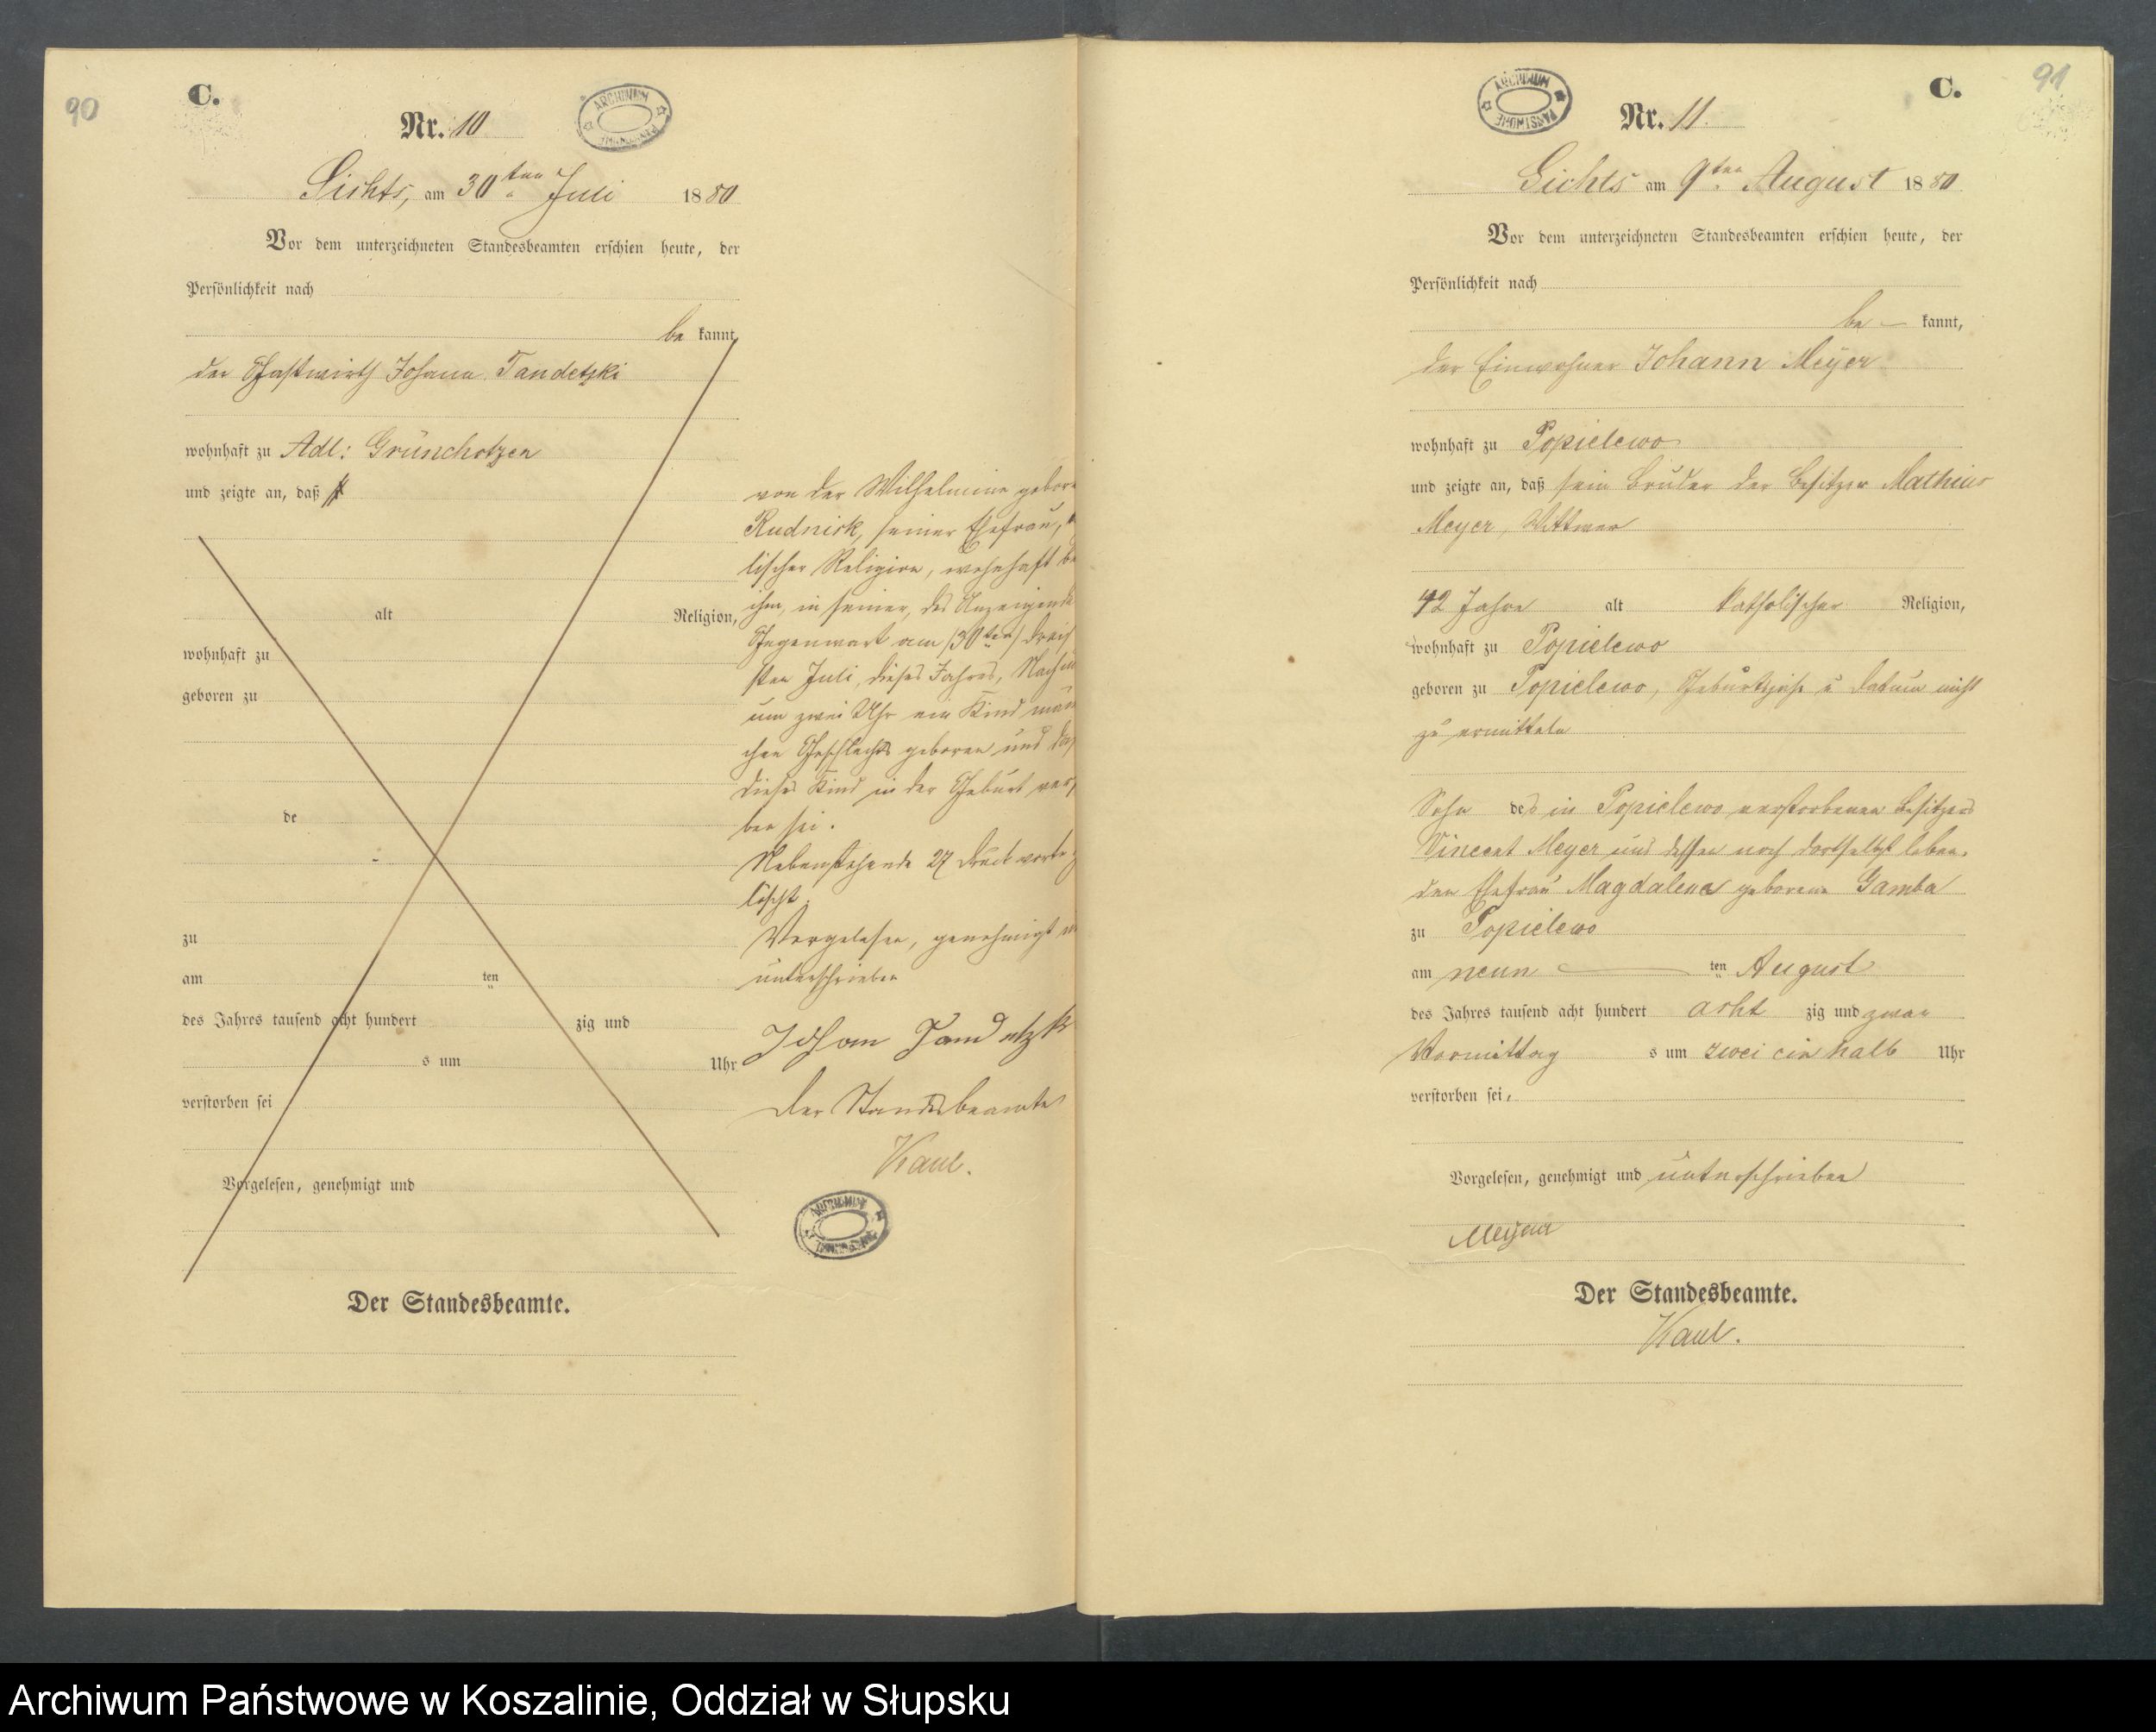 90
C.
Nr. 10
ARCHIWUM PAŃSTWOWE
Sichts, am 30ten Juli 1880
Vor dem unterzeichneten Standesbeamten erschien heute, der
Persönlichkeit nach
be kannt,
der Gastwirth Johann Tandetzki
wohnhaft zu Adl: Grünchotzen
und zeigte an, daß
alt Religion,
wohnhaft zu
geboren zu
de
zu
am ten
des Jahres tausend acht hundert zig und
s um Uhr
verstorben sei
Vorgelesen, genehmigt und
Der Standesbeamte.
von der Wilhelmine gebore
Rudnick, seiner Ehefrau,
lischer Religion, wohnhaft be
ihm, in seiner, des Anzeigende
Gegenwart am (30ten) dreiß
sten Juli, dieses Jahres, Nachm
um zwei Uhr ein Kind männ
chen Geschlechts geboren und daß
dieses Kind in der Geburt vers
ben sei.
Nebenstehende 27 Druckworte g
löscht.
Vorgelesen, genehmigt u
unterschrieben
Johan Tandetzk
Der Standesbeamte
Kaul.
ARCHIWUM PAŃSTWOWE
91
C.
ARCHIWUM PAŃSTWOWE
Nr. 11.
Sichts am 9ten August 1880.
Vor dem unterzeichneten Standesbeamten erschien heute, der
Persönlichkeit nach
be kannt,
der Einwohner Johann Meyer
wohnhaft zu Popielewo
und zeigte an, daß sein Bruder der Besitzer Mathias
Meyer, Wittwer
42 Jahre alt katholischer Religion,
wohnhaft zu Popielewo
geboren zu Popielewo, Geburtsjahr u Datum nicht
zu ermitteln
Sohn des in Popielewo verstorbenen Besitzers
Vincent Meyer und dessen noch dortselbst leben-
den Ehefrau Magdalena geborene Gamba
zu Popielewo
am neun ten August
des Jahres tausend acht hundert acht zig und zwar
Vormittag s um zwei ein halb Uhr
verstorben sei,
Vorgelesen, genehmigt und unterschrieben
Meyer
Der Standesbeamte.
Kaul.
Archiwum Państwowe w Koszalinie, Oddział w Słupsku